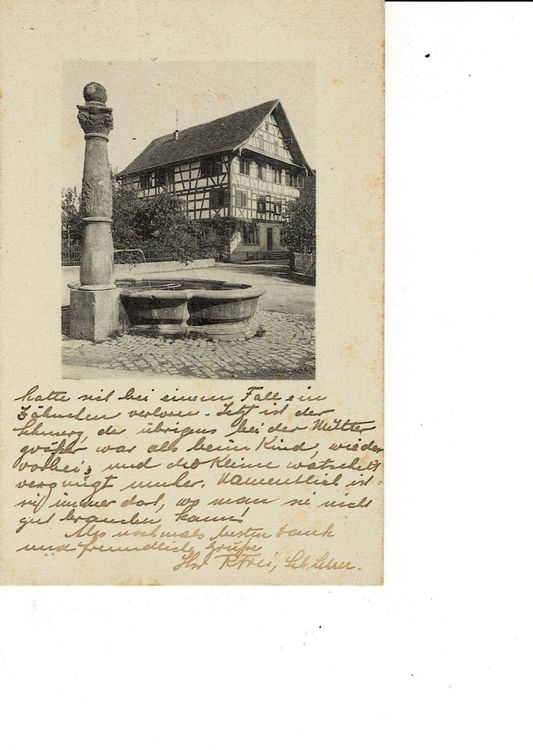 hatte sich bei einem Fall ein
Zähnchen verloren. Jetzt ist der
Schmerz, der übrigens bei der Mutter
größer war als beim Kind, wieder
vorbei, und das Kleine watschelt
vergnügt umher. Namentlich ist
sie immer dort, wo man sie nicht
gut brauchen kann!
Also nochmals besten Dank
und freundliche Grüße
Frei, Lehrer.